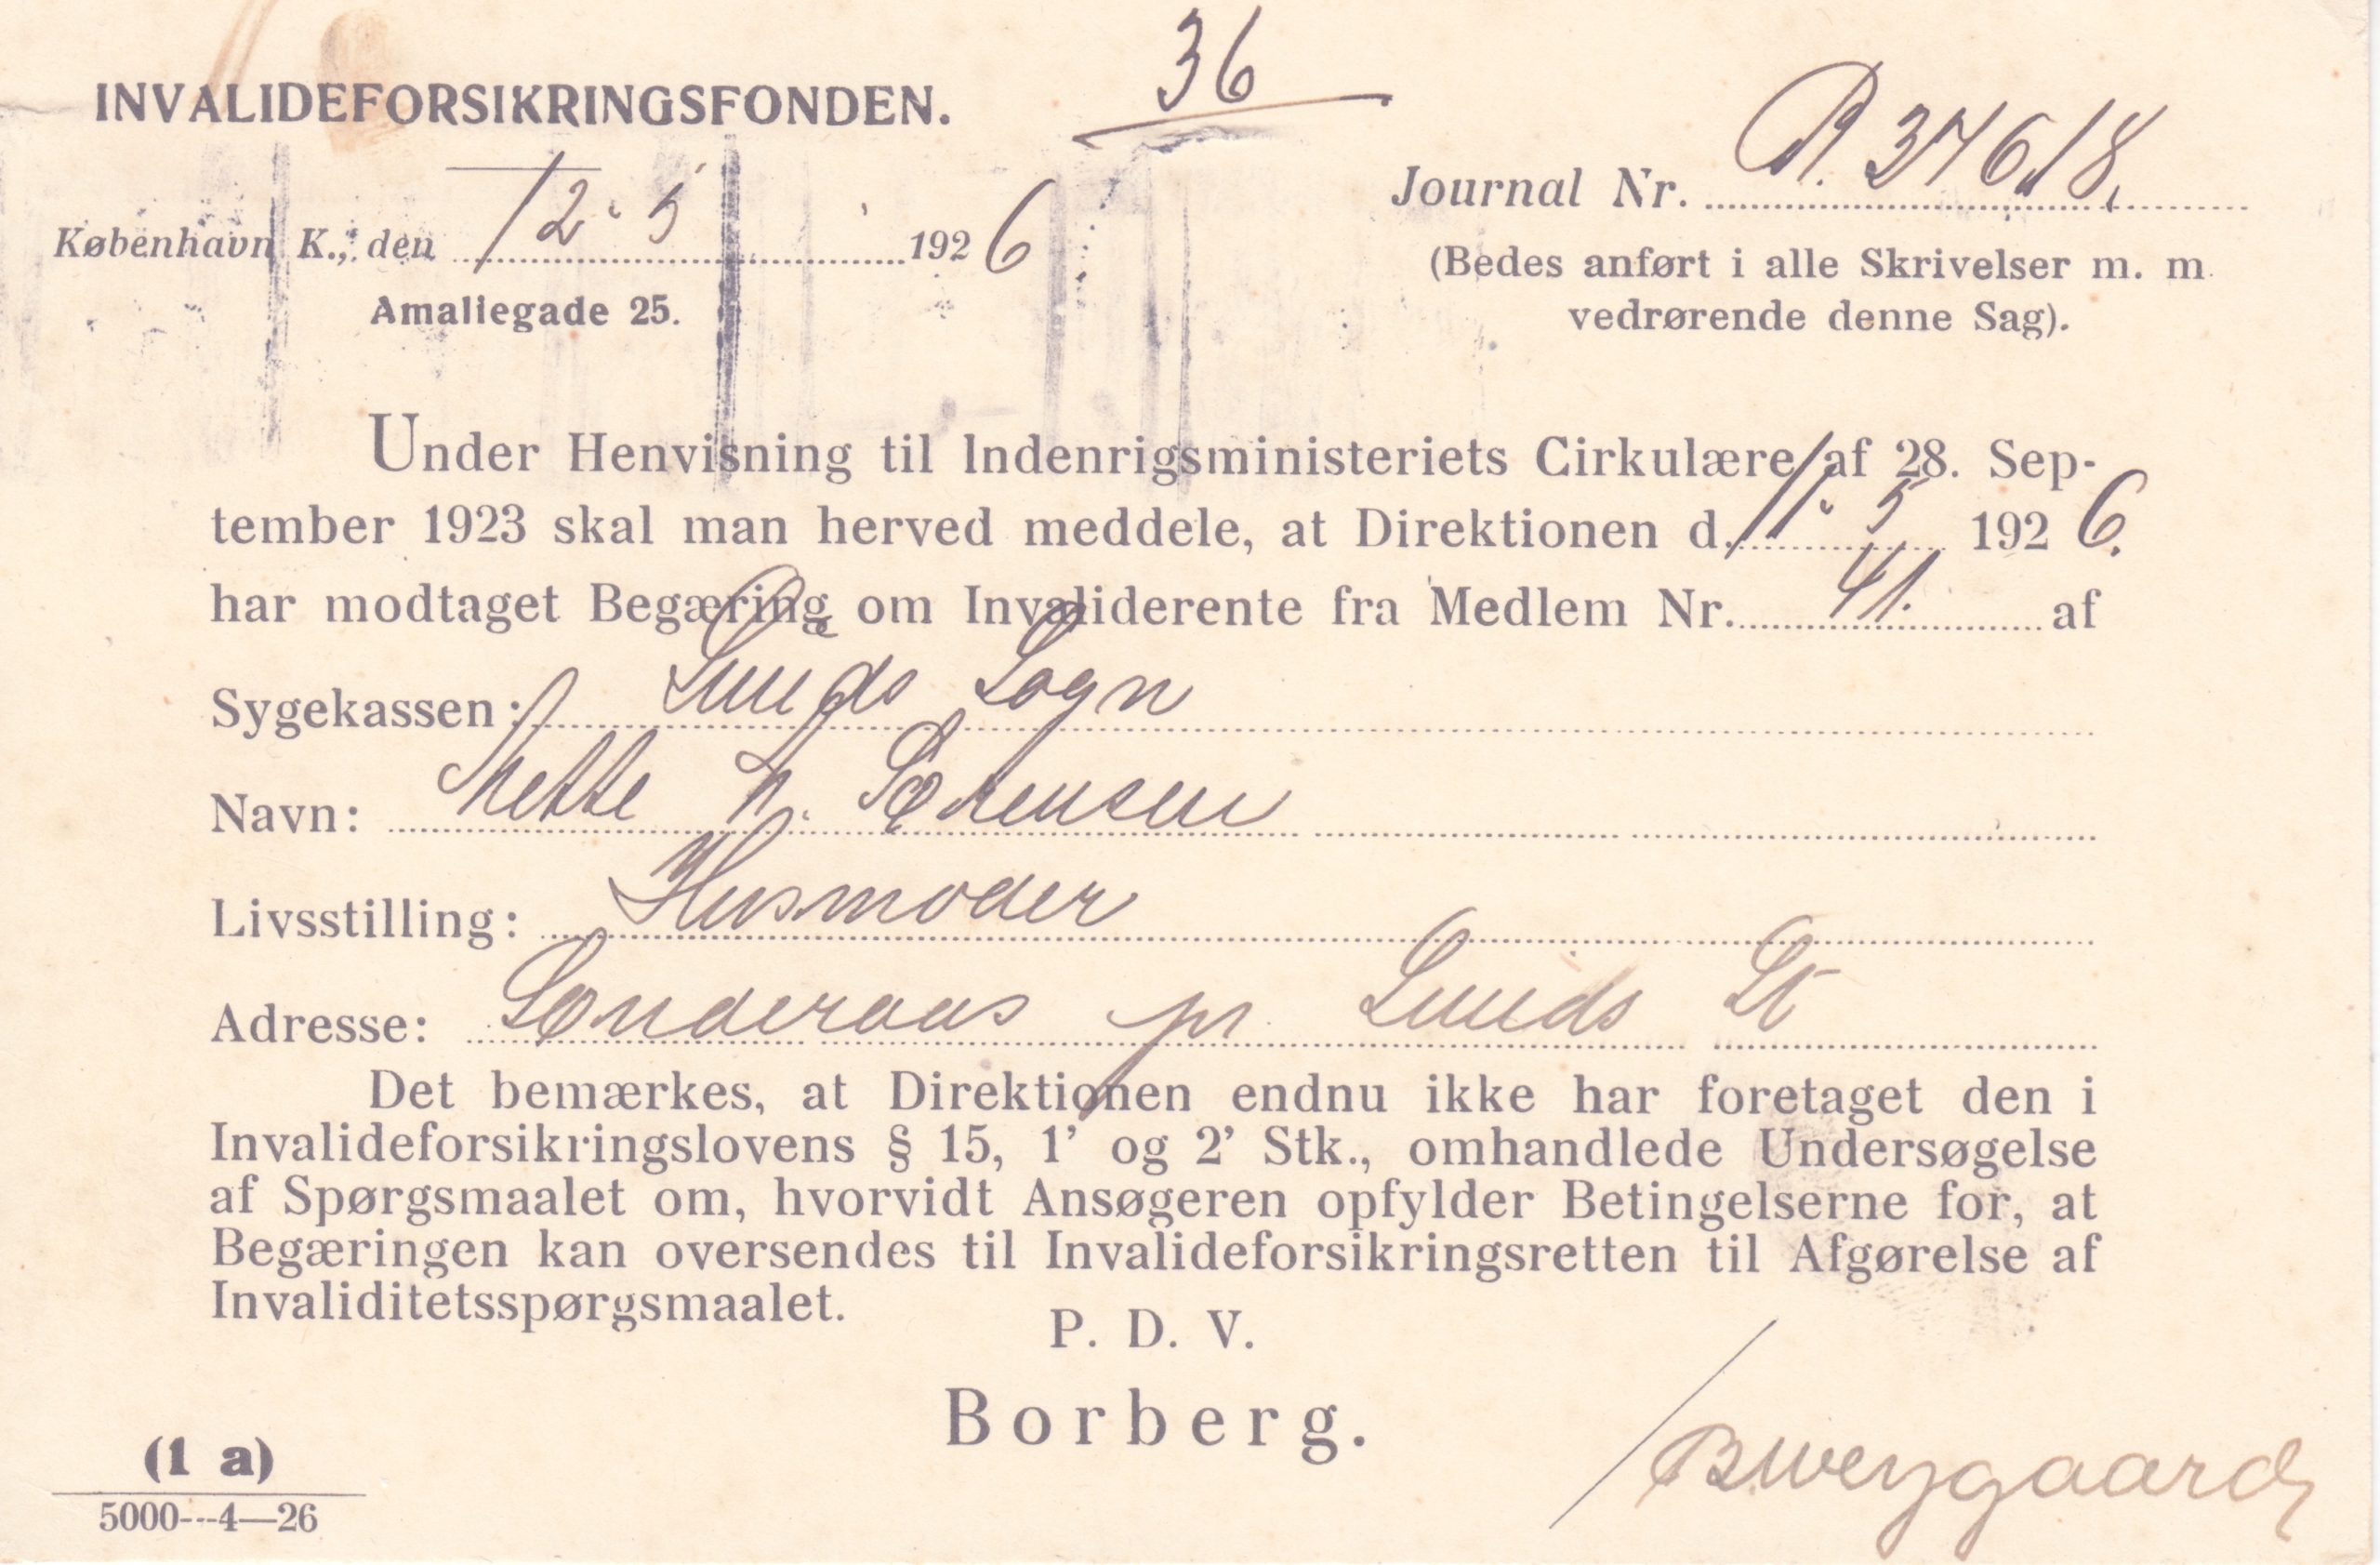 36
INVALIDEFORSIKRINGSFONDEN.
Journal Nr. A. 37618.
København K., den 12-5 1926
Amaliegade 25.
(Bedes anført i alle Skrivelser m. m
vedrørende denne Sag).
Under Henvisning til Indenrigsministeriets Cirkulære af 28. Sep-
tember 1923 skal man herved meddele, at Direktionen d. 11-5 1926.
har modtaget Begæring om Invaliderente fra Medlem Nr. 41. af
Sygekassen: Lunds Sogn
Navn: Mette K. Sørensen
Livsstilling: Husmoder
Adresse: Sønderaas pr Lunds St
Det bemærkes, at Direktionen endnu ikke har foretaget den i
Invalideforsikringslovens § 15, 1' og 2' Stk., omhandlede Undersøgelse
af Spørgsmaalet om, hvorvidt Ansøgeren opfylder Betingelserne for, at
Begæringen kan oversendes til Invalideforsikringsretten til Afgørelse af
Invaliditetsspørgsmaalet.
P. D. V.
Borberg.
(1 a)
5000---4—26